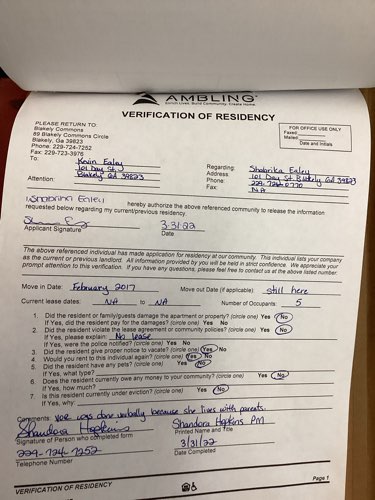 AMBLING
Enrich Lives. Build Community. Create Home.
VERIFICATION OF RESIDENCY
PLEASE RETURN TO:
Blakely Commons
89 Blakely Commons Circle
Blakely, Ga 39823
Phone: 229-724-7252
Fax: 229-723-3976
FOR OFFICE USE ONLY
Faxed
Mailed
Date and Initials
To: Kevin Ealey
101 Day St
Attention: Blakely Ga 39823
Regarding: Shabrika Ealey
Address 101 Day St Blakely Ga 39823
Phone: 229-724-0770
Fax: NA
Ealey hereby authorize the above referenced community to release the information
requested below regarding my current/previous residency.
3-31-22
Applicant Signature Date
The above referenced individual has made application for residency at our community. This individual lists your company
as the current or previous landlord. All information provided by you will be held in strict confidence. We appreciate your
prompt attention to this verification. If you have any questions, please feel free to contact us at the above listed number.
Move in Date: February 2017 Move out Date (if applicable): still here
Current lease dates: NA to NA Number of Occupants: 5
1. Did the resident or family/guests damage the apartment or property? (circle one) Yes No
If Yes, did the resident pay for the damages? (circle one) Yes No
2. Did the resident violate the lease agreement or community policies? (circle one) Yes No
If Yes, please explain: No lease
If Yes, were the police notified? (circle one) Yes No
3. Did the resident give proper notice to vacate? (circle one) Yes No
4. Would you rent to this individual again? (circle one) Yes No
5. Did the resident have any pets? (circle one) Yes No
If Yes, what type?
6. Does the resident currently owe any money to your community? (circle one) Yes No
If Yes, how much?
7. Is this resident currently under eviction? (circle one) Yes No
If Yes, why:
Comments: VOR was done verbally because she lives with parents.
Shandora Hopkins Shandora Hopkins PM
Signature of Person who completed form Printed Name and Title
229-724-7252 3/31/22
Telephone Number Date Completed
Page 1
VERIFICATION OF RESIDENCY